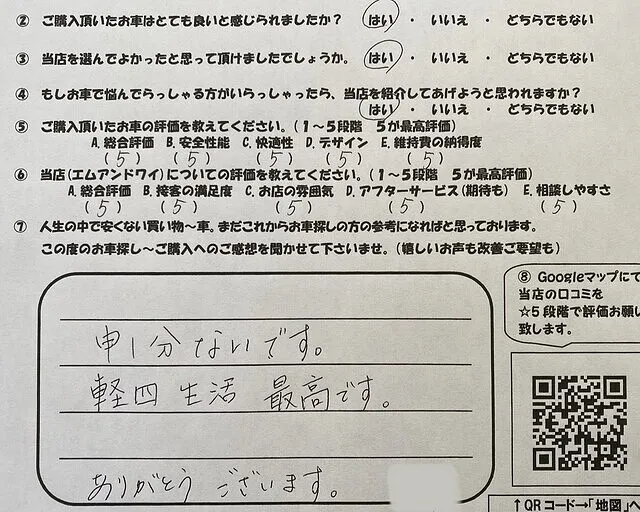 ② ご購入頂いたお車はとても良いと感じられましたか？ はい ・ いいえ ・ どちらでもない
③ 当店を選んでよかったと思って頂けましたでしょうか。 はい ・ いいえ ・ どちらでもない
④ もしお車で悩んでらっしゃる方がいらっしゃったら、当店を紹介してあげようと思われますか？
はい ・ いいえ ・ どちらでもない
⑤ ご購入頂いたお車の評価を教えてください。(１～５段階 ５が最高評価)
A. 総合評価 B. 安全性能 C. 快適性 D. デザイン E. 維持費の納得度
(5) (5) (5) (5) (5)
⑥ 当店(エムアンドワイ)についての評価を教えてください。(１～５段階 ５が最高評価)
A. 総合評価 B. 接客の満足度 C. お店の雰囲気 D. アフターサービス(期待も) E. 相談しやすさ
(5) (5) (5) (5) (5)
⑦ 人生の中で安くない買い物～車。まだこれからお車探しの方の参考になればと思っております。
この度のお車探し～ご購入へのご感想を聞かせて下さいませ。(嬉しいお声も改善ご要望も)
申し分ないです。
軽四 生活 最高です。
ありがとう ございます。
⑧ Googleマップにて
当店の口コミを
☆５段階で評価お願い
致します。
↑QRコード→「地図」へ